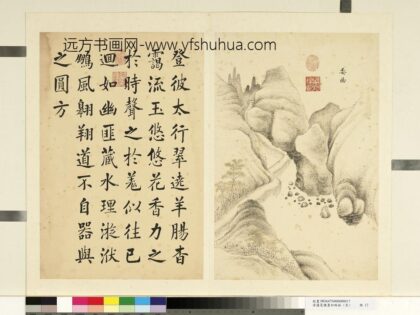 远方书画网-www.yfshuhua.com
委曲
登彼太行翠遶羊腸杳
靄流玉悠悠花香力之
於時聲之於羌似往已
迴如幽匪藏水理漩洑
鵬風翱翔道不自器與
之圓方